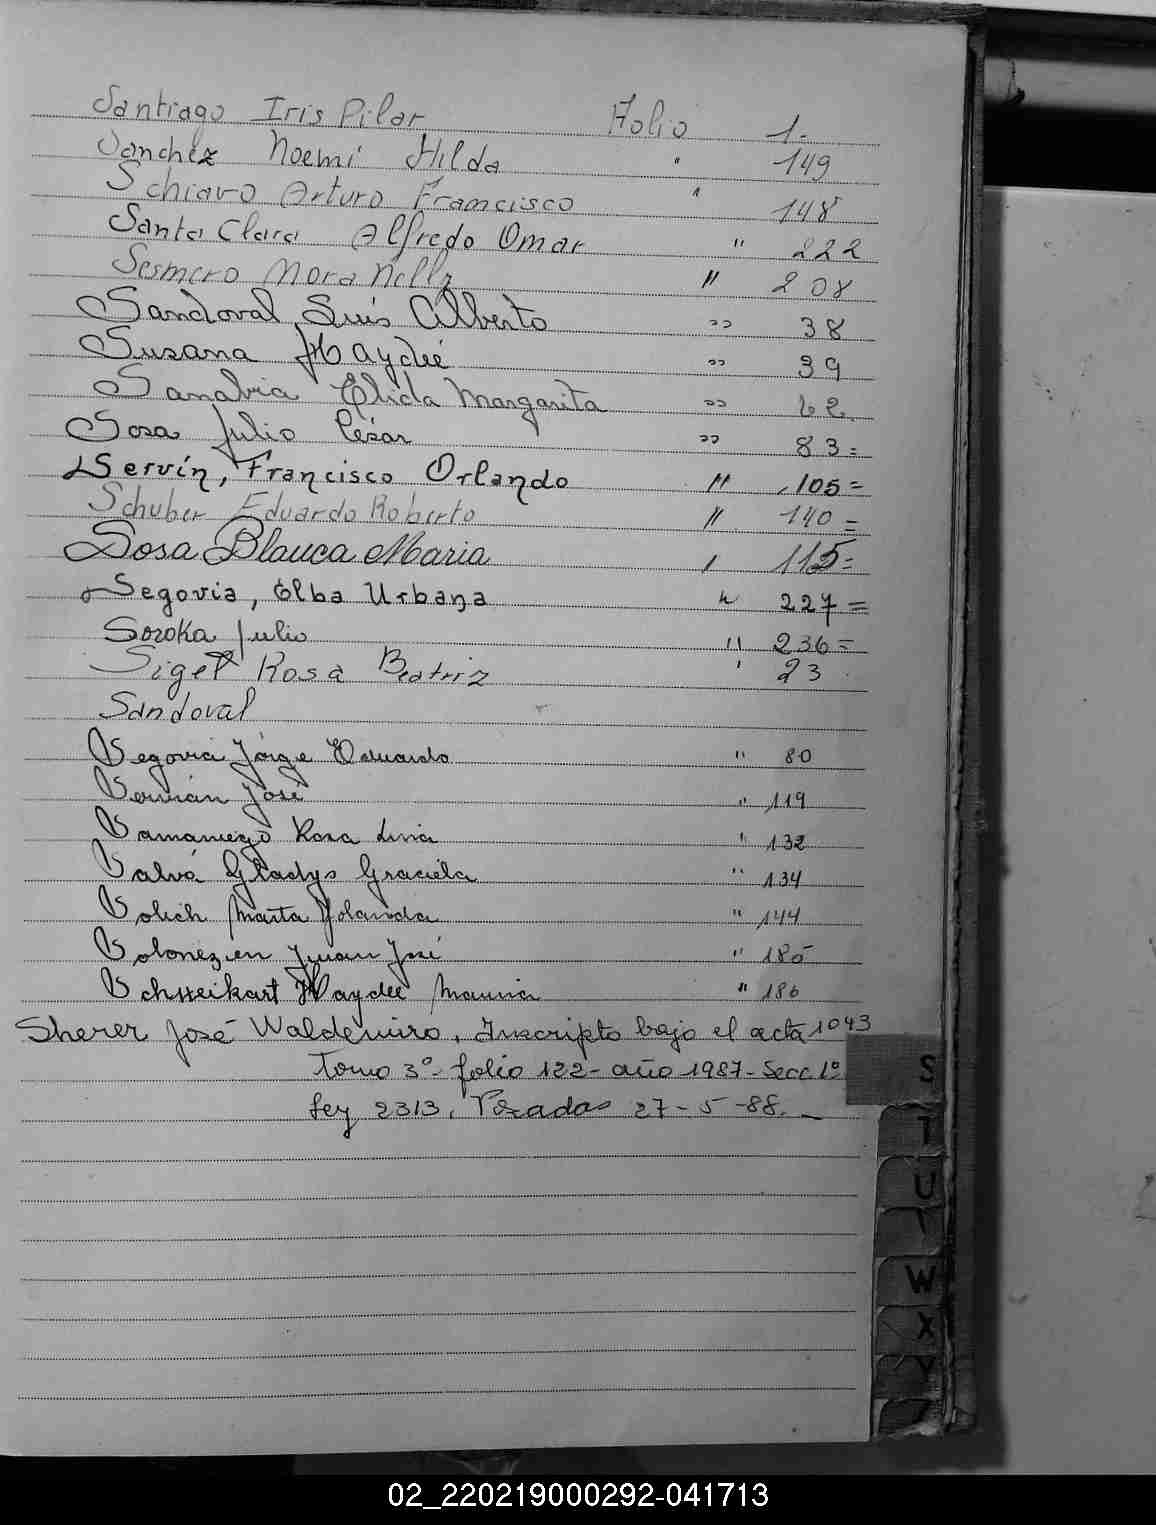 Santiago Iris Pilar Folio 1-
Sanchez Noemi Hilda " 149
Schiavo Arturo Francisco " 148
Santa Clara Alfredo Omar " 222
Sesmero Mora Nelly " 208
Sandoval, Luis Alberto " 38
Susana Haydeé " 39
Sanabria Elida Margarita " 62
Sosa Julio César " 83=
Servín, Francisco Orlando " 105=
Schuber Eduardo Roberto " 140=
Sosa Blanca Maria " 115=
Segovia, Elba Urbana " 227=
Soroka Julio " 236=
Siget Rosa Beatriz " 23
Sandoval
Segovia Jorge Eduardo " 80
José " 119
Samaniego Rosa " 132
Salvá Gladys Graciela " 134
Solich Marta Yolanda " 144
Juan José " 185
Haydeé " 186
Sherer José Waldemiro. Inscripto bajo el acta 1043
Tomo 3º- folio 122- año 1987- Secc 1º
Ley 2313. Posadas 27-5-88.
S
T
U
W
X
Y
Z
02_220219000292-041713